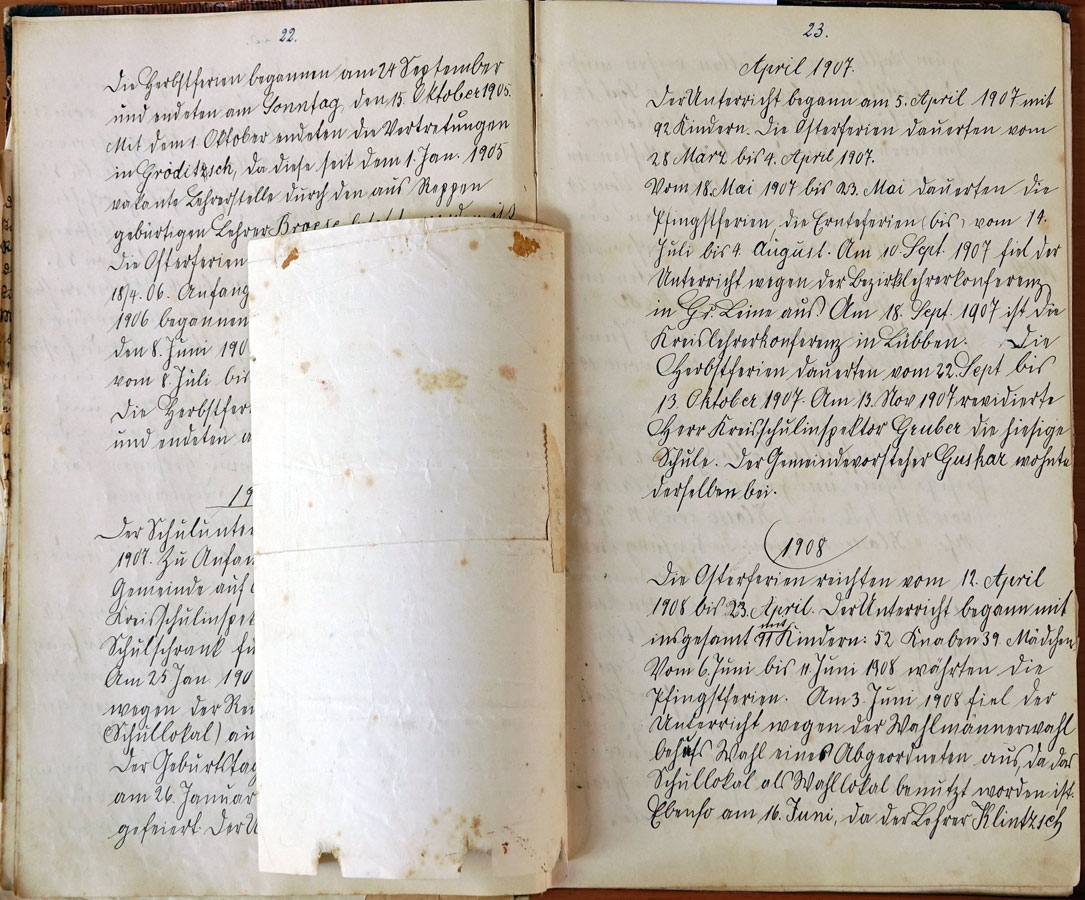 22.
Die Herbstferien begannen am 24 September
und endeten am Sonntag, den 15. Oktober 1905.
Mit dem 1. Oktober endeten die Vertretungen
in Gröditzsch, da diese seit dem 1. Jan. 1905
vakante Lehrerstelle durch den aus Reppen
gebürtigen Lehrer
Die Osterferien
18/4. 06. Anfang
1906 begannen
den 8. Juni 190
vom 8. Juli bis
Die Herbstfer
und endeten a
19
Der Schulunte
1907. Zu Anfan
Gemeinde auf
Kreisschulinspek
Schulschrank fü
Am 25 Jan 190
wegen der Rei
(Schullokal) au
Der Geburtstag
am 26. Januar
gefeiert. Der U
23.
April 1907.
Der Unterricht begann am 5. April 1907 mit
92 Kindern. Die Osterferien dauerten vom
28 März bis 4. April 1907.
Vom 18. Mai 1907 bis 23. Mai dauerten die
Pfingstferien, die Ernteferien (bis) vom 14.
Juli bis 4. August. Am 10. Sept. 1907 fiel der
Unterricht wegen der Bezirklehrerkonferenz
in Gr. Leine aus. Am 18. Sept. 1907 ist die
Kreislehrerkonferenz in Lübben. Die
Herbstferien dauerten vom 22. Sept bis
13. Oktober 1907. Am 13. Nov 1907 revidierte
Herr Kreisschulinspektor Gruber die hiesige
Schule. Der Gemeindevorsteher Guskar wohnte
derselben bei.
1908
Die Osterferien reichten vom 12. April
1908 bis 23. April. Der Unterricht begann mit
insgesamt 91 Kindern: 52 Knaben 39 Mädchen
Vom 6. Juni bis 11. Juni 1908 währten die
Pfingstferien. Am 3. Juni 1908 fiel der
Unterricht wegen der Wahlmännerwahl
behufs Wahl eines Abgeordneten aus, da das
Schullokal als Wahllokal benutzt worden ist.
Ebenso am 16. Juni, da der Lehrer Klintzsch